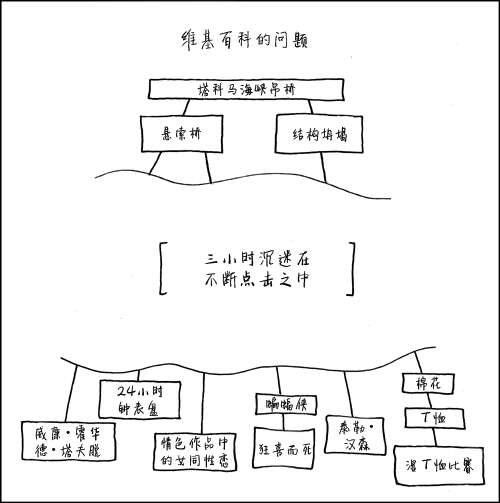 维基百科的问题
塔科马海峡吊桥
悬索桥
结构坍塌
三小时沉迷在
不断点击之中
24小时
钟表盘
威廉·霍华
德·塔夫脱
情色作品中
的女同性恋
蝙蝠侠
狂喜而死
泰勒·
汉森
棉花
T恤
湿T恤比赛